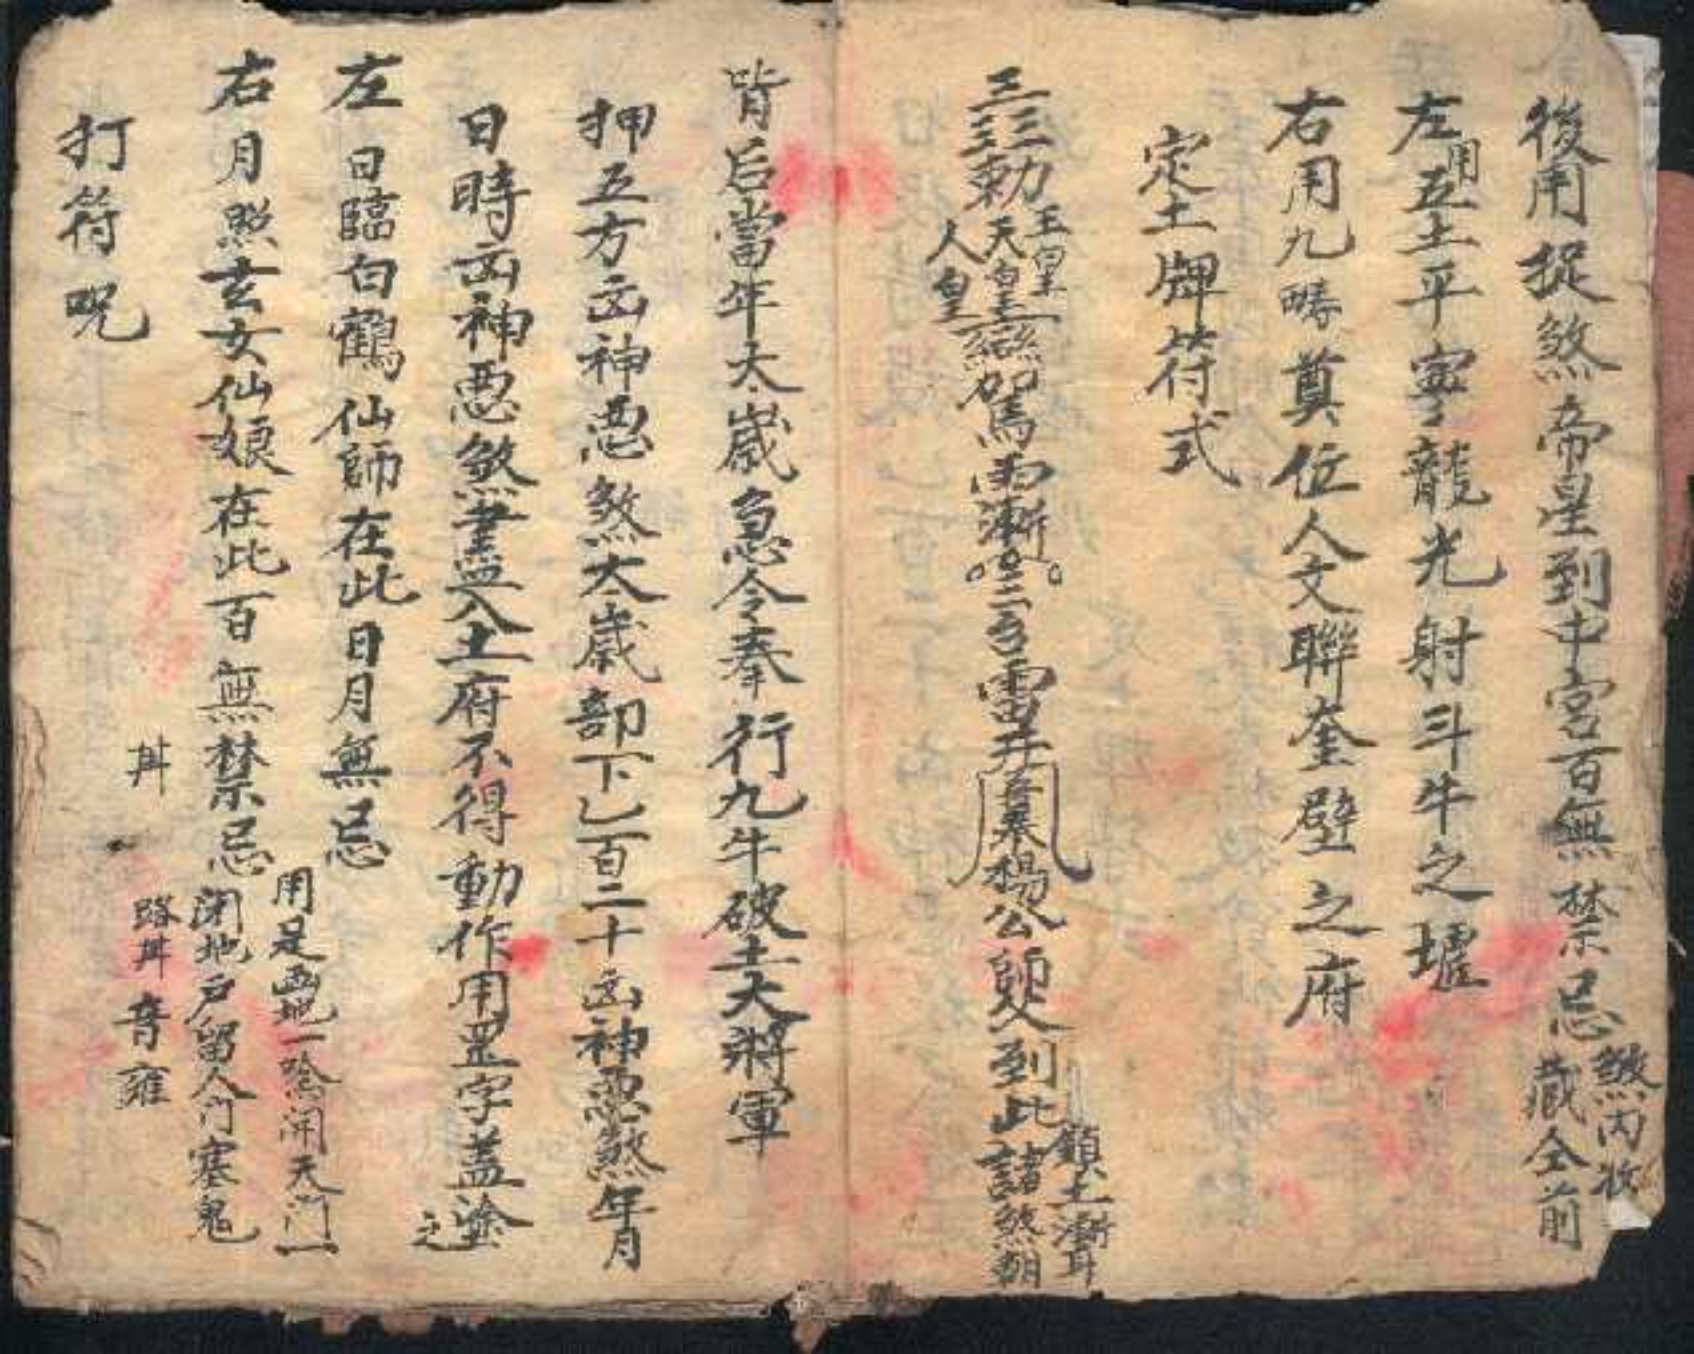 後用捉煞帝星到中宮百無禁忌
煞內收
藏仝前
左用五土平寧龍光射斗牛之墟
右用九疇奠位人文聯奎壁之府
定土牌符式
勅
玉皇
天皇
人皇
鸞駕雨漸
雷
楊公師父到此諸煞朝
鎮土
背后當年太歲急令奉行九牛破土大將軍
押五方凶神惡煞太歲部下乙百二十凶神惡煞年月
日時凶神惡煞盡入土府不得動作用罡字蓋塗
之
左日臨白鶴仙師在此日月無忌
右月照玄女仙娘在此百無禁忌
用是画地一喰開天门一
闭地戶留人门塞鬼
路
打符呪